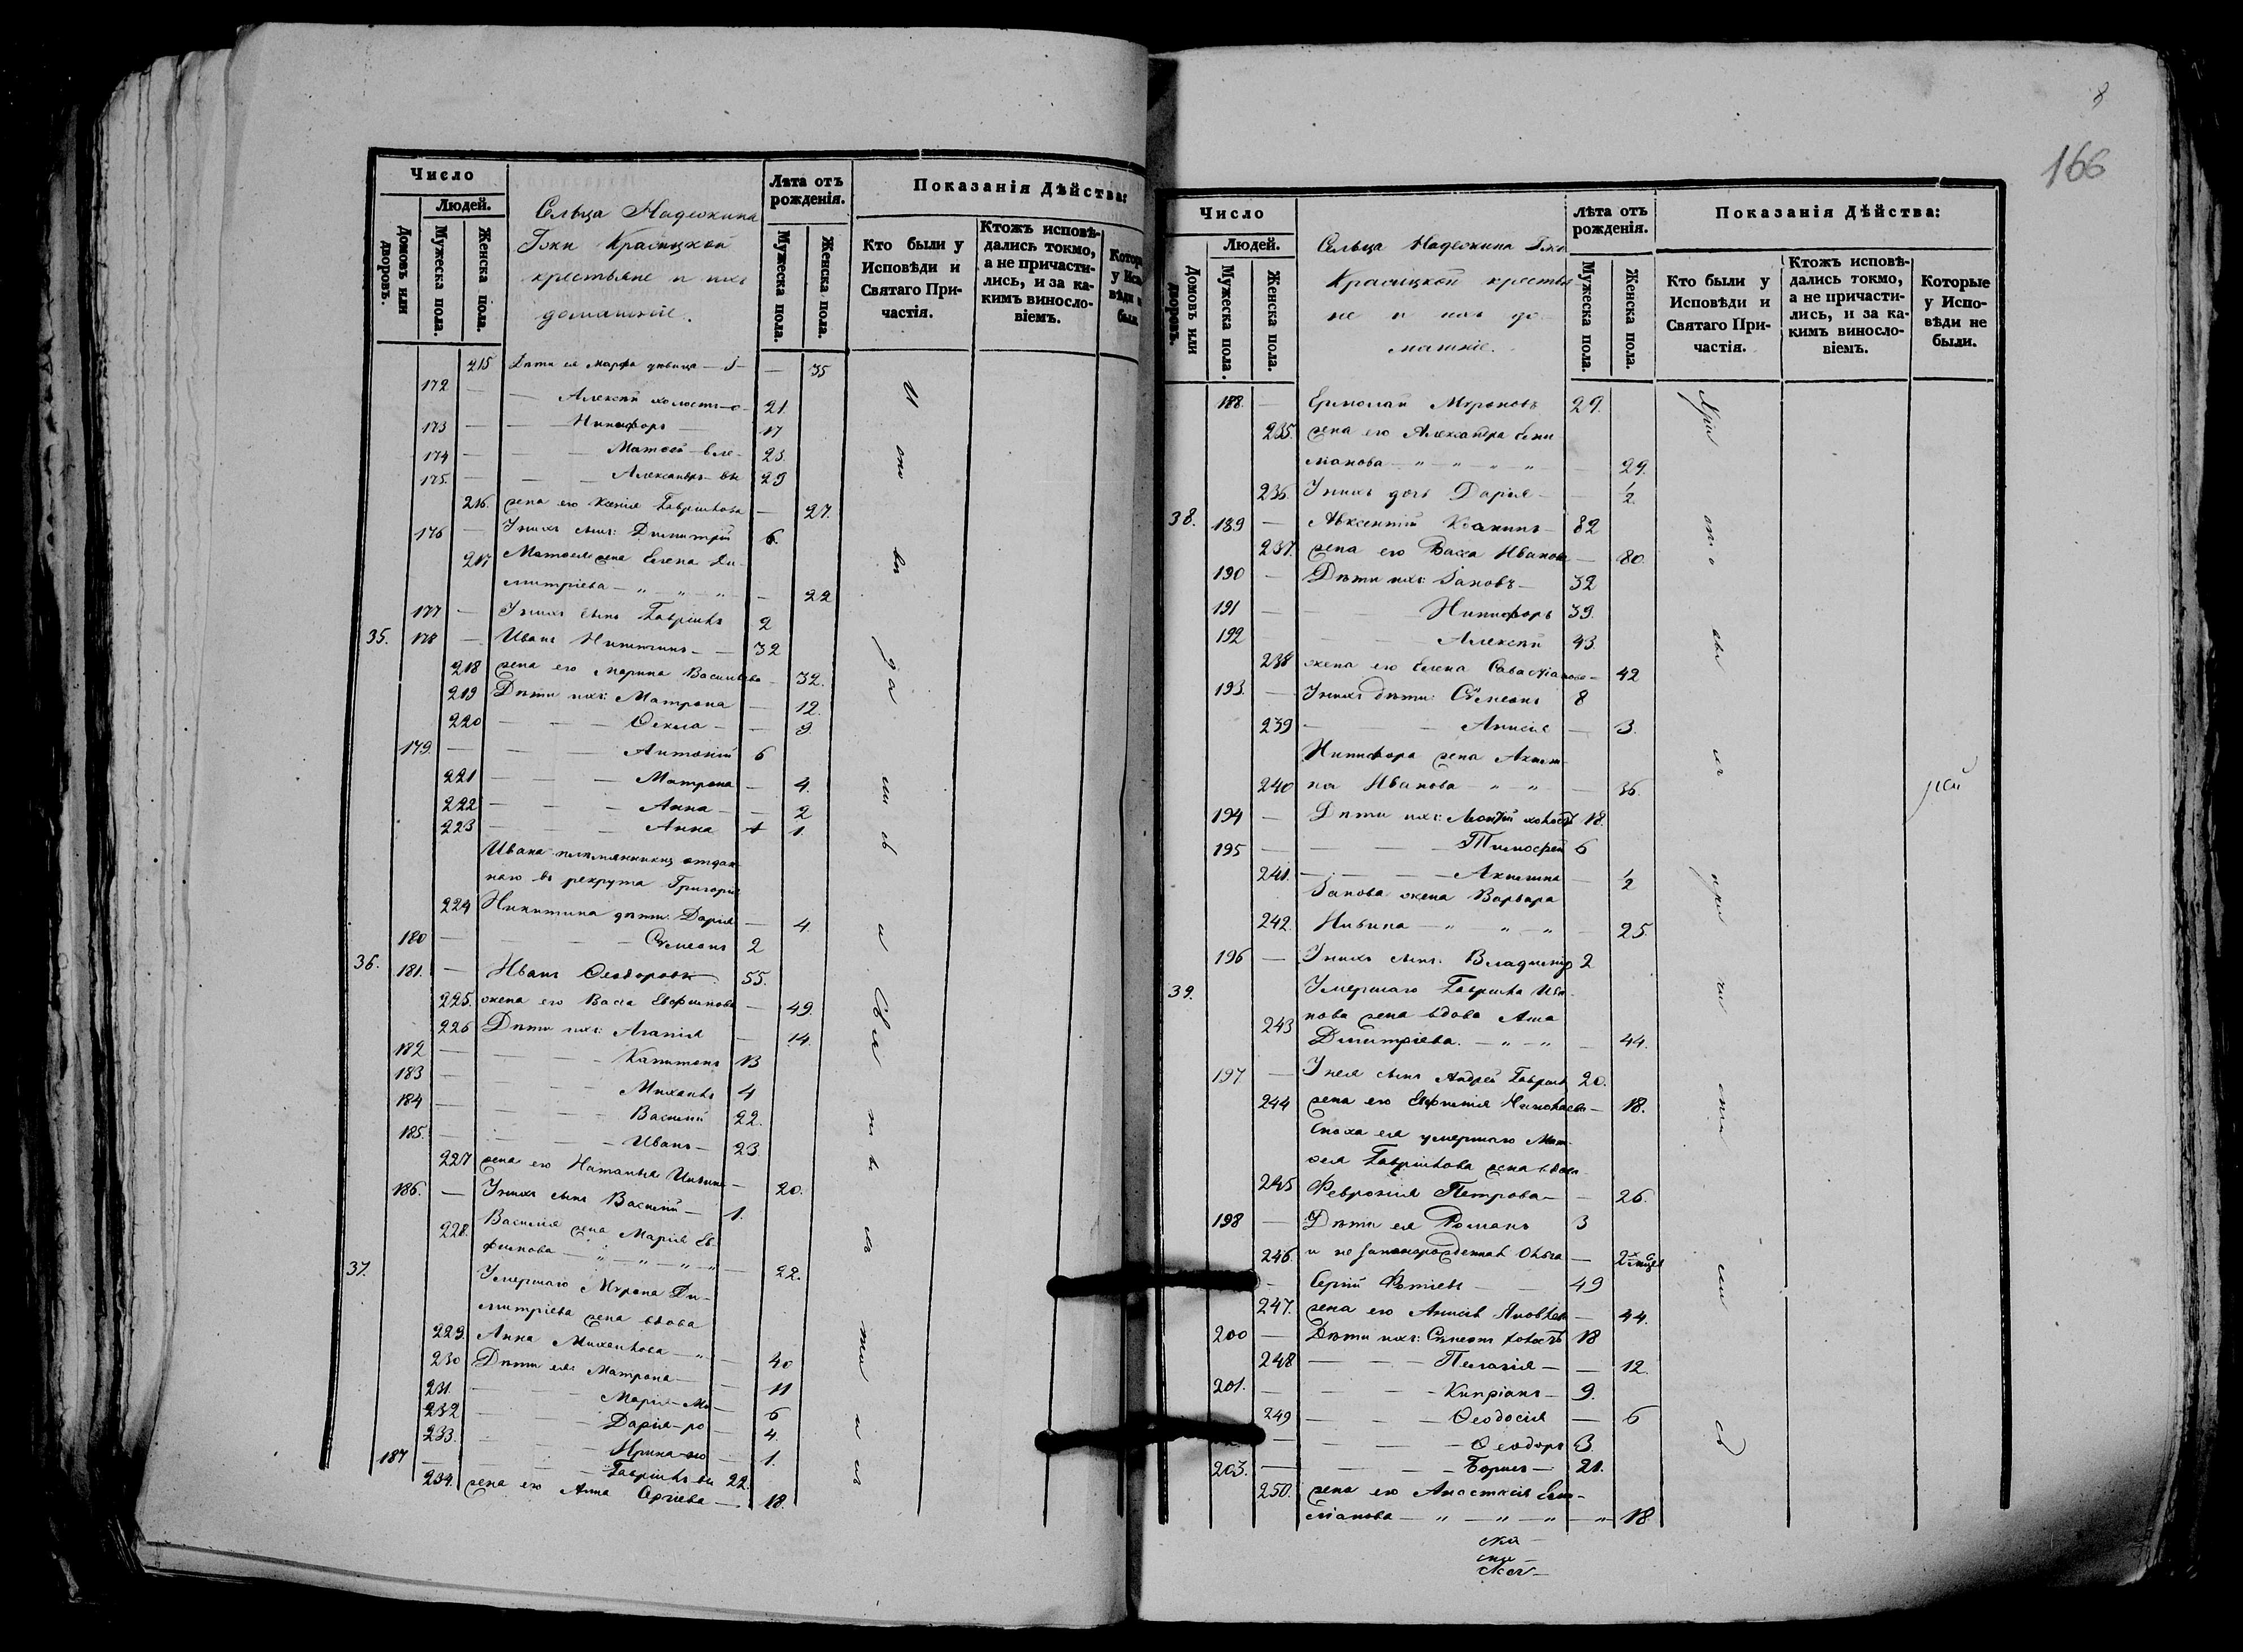 Число
Людей.
Домовъ или дворовъ.
Мужеска пола.
Женска пола.
Сельца Надежина
Гжи Красицкой
крестьяне и ихъ
домашніе.
Лѣта отъ рожденія.
Мужеска пола.
Женска пола.
Показанія Дѣйства:
Кто были у Исповѣди и Святаго Причастія.
Ктожъ исповѣдались токмо, а не причастились, и за какимъ винословіемъ.
215 Дѣти ея Марфа дѣвица — 35
172 — — Алексѣй холостъ 21.
173 — — Никифоръ 17
174 — — Матѳей 23.
175. — — Александръ 29
216. жена его Ксенія Гавріилова — 27.
176 — У нихъ сынъ: Димитрій 6.
217 Матѳея жена Елена Ди-
митріева — „ — „ — „ — 22
177 — У нихъ сынъ Гавріилъ 2
35. 178 — Иванъ Никитинъ — — 32
218 жена его Марина Васильева — 32.
219 Дѣти ихъ: Матрона — 12.
220 — — — Ѳекла — — 9.
179. — — — Антоній 6
221 — — — Матрона — 4.
222 — — — Анна — — 2
223 — — — Анна 1.
Ивана племянника отдан-
наго въ рекрута Григорія
224 Никитина дѣти: Дарія — 4.
180 — — — Сѵмеонъ 2
36. 181. — Иванъ Ѳеодоровъ 55.
225. жена его Васса Евфимова — 49.
226 Дѣти ихъ: Агапія — 14.
182 — — — Капитонъ 13
183 — — — Михаилъ 4
184 — — — Василій 22.
185. — — — Иванъ — 23
227 жена его Наталья — 20.
186. — У нихъ сынъ Василій — 1.
228. Василія жена Марія Ев-
фимова — „ — „ — „ — 22.
37. Умершаго Мѵрона Ди-
митріева жена вдова
229. Анна Михайлова — „ — 40
230 Дѣти ея: Матрона — — 11
231. — — Марія — 6
232 — — Дарія — 4.
233. — — Ирина — 1.
187 — — Гавріилъ 22.
234. жена его Анна Сергіева — 18.
8
166
Число
Людей.
Домовъ или дворовъ.
Мужеска пола.
Женска пола.
Сельца Надежина Гжи
Красицкой крестья-
не и ихъ до-
машніе.
Лѣта отъ рожденія.
Мужеска пола.
Женска пола.
Показанія Дѣйства:
Кто были у Исповѣди и Святаго Причастія.
Ктожъ исповѣдались токмо, а не причастились, и за какимъ винословіемъ.
Которые у Исповѣди не были.
188. — Ермолай Мѵроновъ 29.
235. жена его Александра Еми-
ліанова — „ — „ — „ — „ — 29.
236. У нихъ дочь Дарія — — 1/2
38. 189 — Авксентій 82
237. жена его Васса Иванова — 80.
190 — Дѣти ихъ: Зановъ — 32
191 — — Никифоръ 39.
192 — — — Алексѣй 43.
238 жена его Елена Савастіанова — 42
193. — У нихъ дѣти: Сѵмеонъ 8
239 — — Анисія — 3.
Никифора жена Акили-
240 на Иванова — „ — „ — 36.
194 — Дѣти ихъ: холостъ 18.
195 — — — Тимоѳей 6
241. — — — Акилина — 1/2
Занова жена Варвара
242. — „ — „ — „ — 25.
196 — У нихъ сынъ: Владиміръ 2
39. Умершаго Гавріила Ива-
нова жена вдова
243 Димитріева. — „ — „ — 44.
197 — У нея сынъ Андрей 20.
244 жена его Евфимія Николаева — 18.
Сноха ея умершаго Мат-
ѳея Гавріилова жена вдова
245 Феврония Петрова — — 26.
198 — Дѣти ея Романъ 3
246. и не законорожденная Ольга — 2
— Сергій Фотіевъ — — 49
247. жена его Анисія Яковлева — 44.
200 — Дѣти ихъ: Сѵмеонъ холостъ 18
248 — — — Пелагія — — 12.
201. — — — Кипріанъ — 9.
249 — — — Ѳеодосія — 6
— — — Ѳеодоръ 3.
203. — — — Борисъ — 21.
250. жена его Анастасія Еми-
ліанова — „ — „ — „ — „ — 18